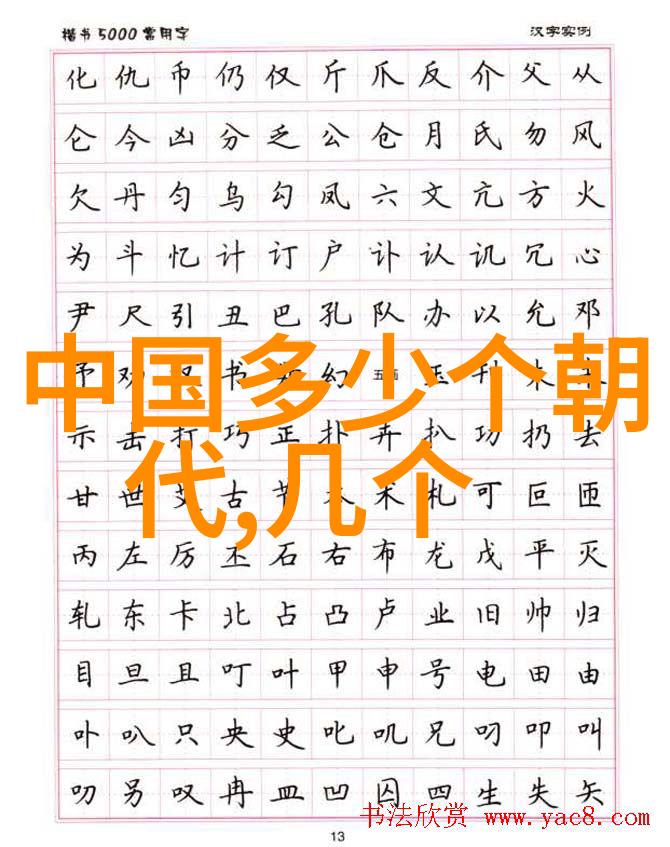 楷书5000常用字 汉字实例
化仇币仍仅斤爪反介父从
仑今凶分乏公仓月氏勿风
欠丹匀乌勾凤六文亢方火
为斗忆计订户讣认讥冗心
尹尺引丑巴孔队办以允邓
中国多少个朝
予劝书幻
示击打巧正扑卉扒功扔去
代,几个
甘世艾古节术札可叵匝
丙左厉丕石右布龙戊平灭
轧东卡北占凸卢业旧帅归
目旦且叮叶甲申号电田由
卟叭只央史叱叽兄叼叩叫
叻另叹冉皿凹囚四生失矢
书法欣赏 www.yac8.com
13